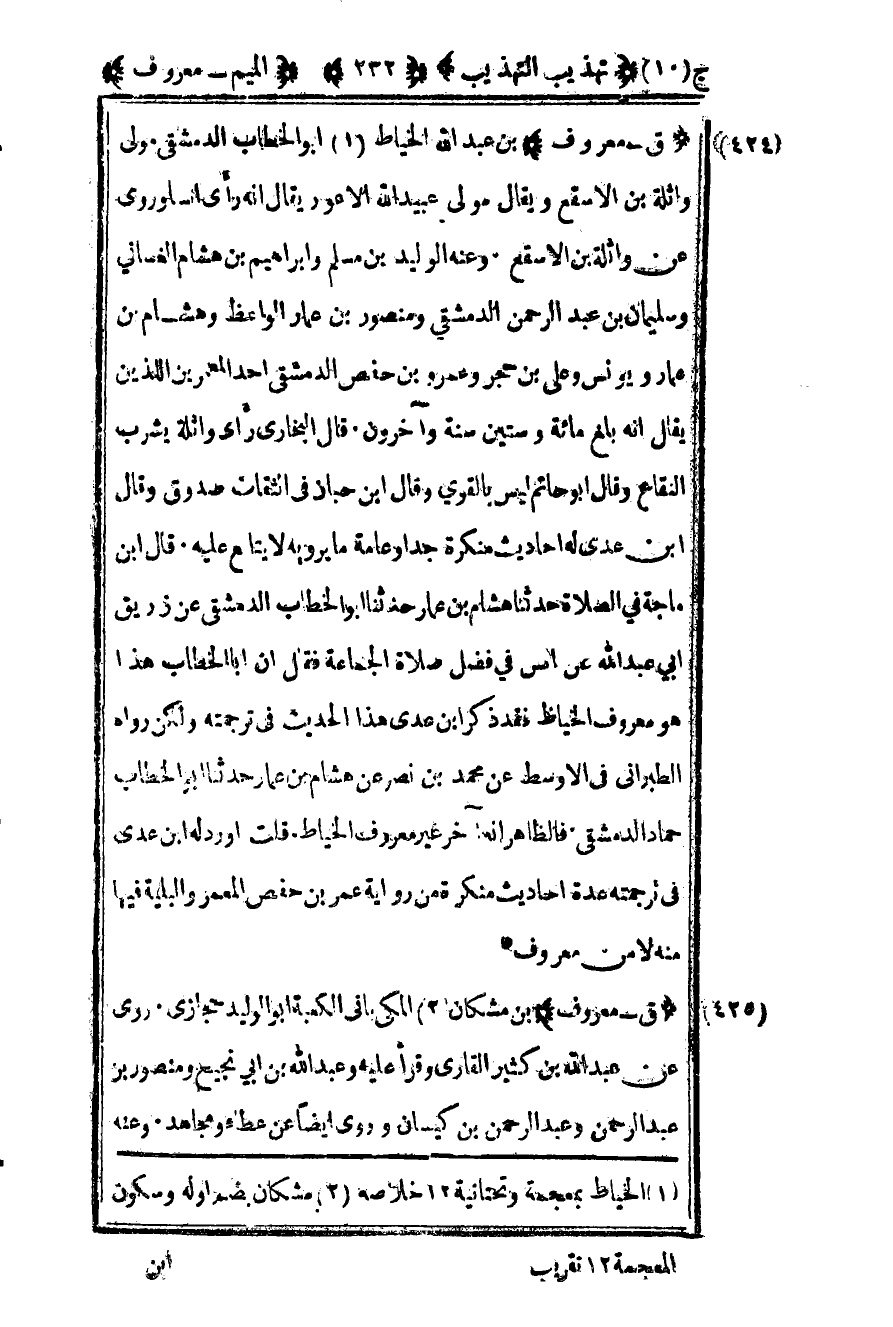 ج (١٠) ﴿ تهذيب التهذيب ﴾ ﴿ ٢٣٢ ﴾ ﴿ الميم ـ معروف ﴾
(٤٢٤) ﴿ ق ـ معروف ﴾ بن عبدالله الخياط (١) ابوالخطاب الدمشقي مولى
واثلة بن الاسقع ويقال مولى عبيدالله الاعور يقال انه رأى انسا وروى
عن واثلة بن الاسقع ٠ وعنه الوليد بن مسلم وابراهيم بن هشام الغساني
وسليمان بن عبد الرحمن الدمشقي ومنصور بن عمار الواعظ وهشام بن
عمار ويونس وعلى بن حجر وعمرو بن حفص الدمشقى احد المعمرين اللذين
يقال انه بلغ مائة وستين سنة وآخرون ٠ قال البخارى رأى واثلة يشرب
النقاع وقال ابوحاتم ليس بالقوي وقال ابن حبان فى الثقات صدوق وقال
ابن عدى له احاديث منكرة جدا وعامة ما يرويه لا يتابع عليه ٠ قال ابن
ماجة في الصلاة حدثنا هشام بن عمار حدثنا ابوالخطاب الدمشقى عن زريق
ابي عبدالله عن انس في فضل صلاة الجماعة فقال ان ابا الخطاب هذا
هو معروف الخياط فقد ذكر ابن عدى هذا الحديث فى ترجمته ولكن رواه
الطبرانى فى الاوسط عن محمد بن نصر عن هشام بن عمار حدثنا ابو الخطاب
حماد الدمشقي ٠ فالظاهر انه آخر غير معروف الخياط ٠ قلت اورد له ابن عدى
فى ترجمته عدة احاديث منكرة من رواية عمر بن حفص المعمر والبلية فيها
منه لا من معروف *
(٤٢٥) ﴿ ق ـ معروف ﴾ بن مشكان (٢) المكي بانى الكعبة ابوالوليد حجازى ٠ روى
عن عبدالله بن كثير القارى وقرأ عليه وعبدالله بن ابي نجيح ومنصور بن
عبدالرحمن وعبدالرحمن بن كيسان وروى ايضا عن عطاء ومجاهد ٠ وعنه
(١) الخياط بمعجمة وتحتانية ١٢ خلاصه (٢) مشكان بضم اوله وسكون
المعجمة ١٢ تقريب
ابن